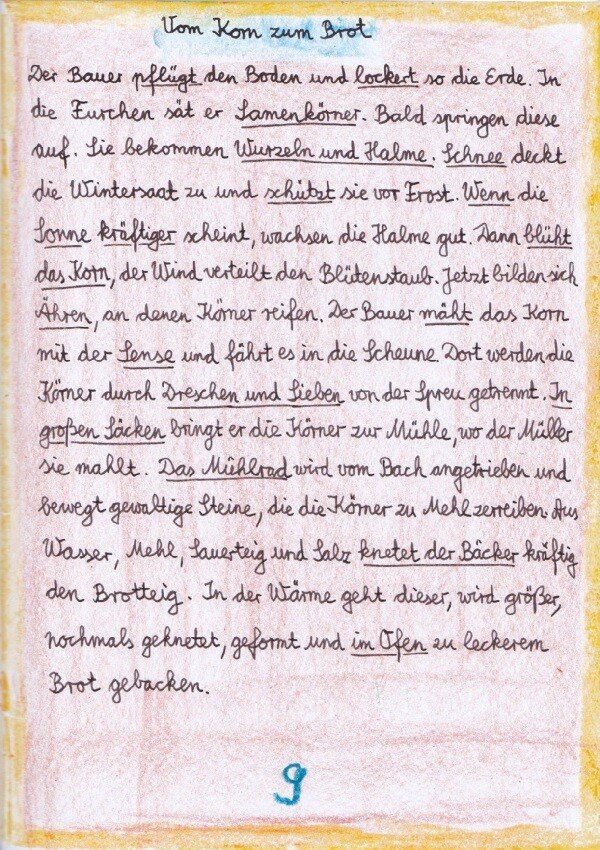 Vom Korn zum Brot
Der Bauer pflügt den Boden und lockert so die Erde. In
die Furchen sät er Samenkörner. Bald springen diese
auf. Sie bekommen Wurzeln und Halme. Schnee deckt
die Wintersaat zu und schützt sie vor Frost. Wenn die
Sonne kräftiger scheint, wachsen die Halme gut. Dann blüht
das Korn, der Wind verteilt den Blütenstaub. Jetzt bilden sich
Ähren, an denen Körner reifen. Der Bauer mäht das Korn
mit der Sense und fährt es in die Scheune. Dort werden die
Körner durch Dreschen und Sieben von der Spreu getrennt. In
großen Säcken bringt er die Körner zur Mühle, wo der Müller
sie mahlt. Das Mühlrad wird vom Bach angetrieben und
bewegt gewaltige Steine, die die Körner zu Mehl zerreiben. Aus
Wasser, Mehl, Sauerteig und Salz knetet der Bäcker kräftig
den Brotteig. In der Wärme geht dieser, wird größer,
nochmals geknetet, geformt und im Ofen zu leckerem
Brot gebacken.
9